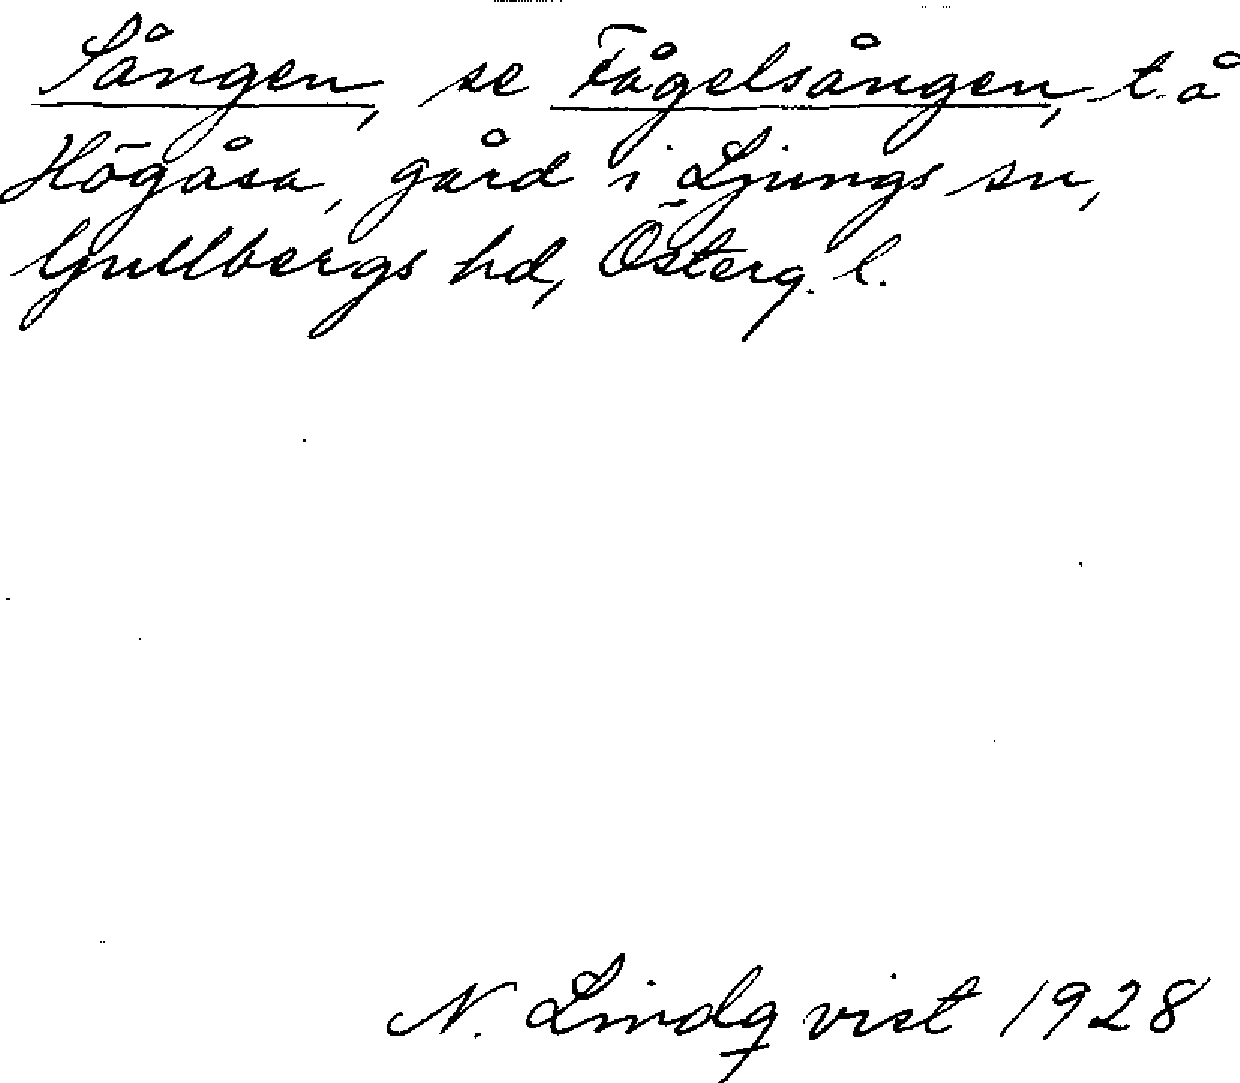 Sången, se Fågelsången, t. å
Högåsa, gård i Ljungs sn,
Gullbergs hd, Österg. l.
N. Lindqvist 1928